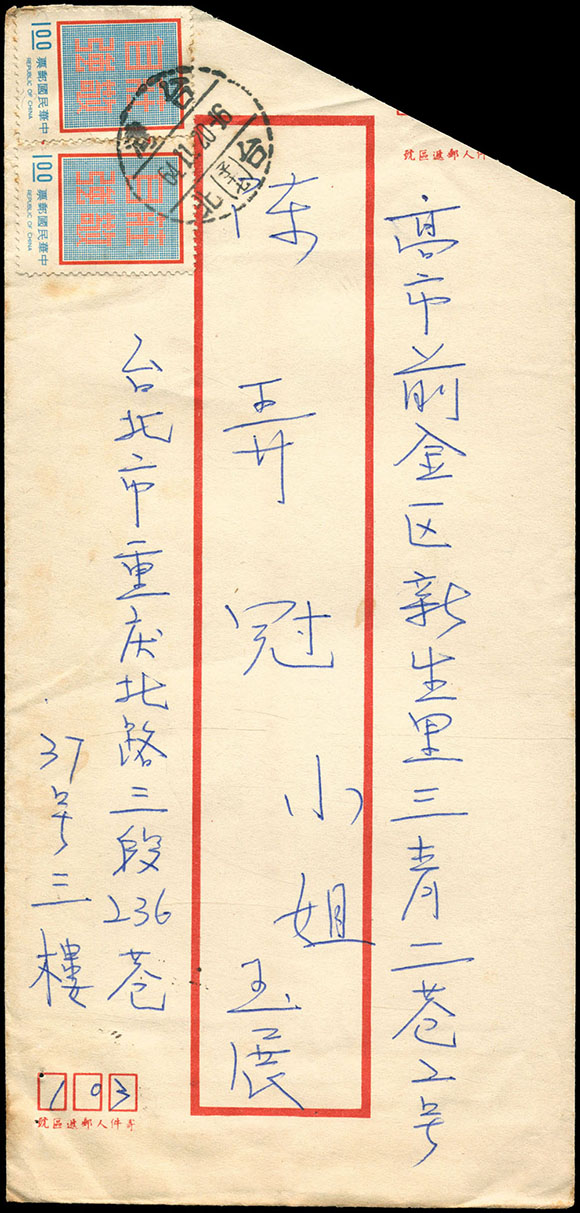 高市前金区新生里三青二巷2号
陈弄冠小姐玉展
台北市重庆北路三段236巷
37号三樓
103
寄件人郵遞區號
件人郵遞區號
中華民國郵票
REPUBLIC OF CHINA
1.00
莊敬自強
中華民國郵票
REPUBLIC OF CHINA
1.00
莊敬自強
台灣
64.11.20.16
台北